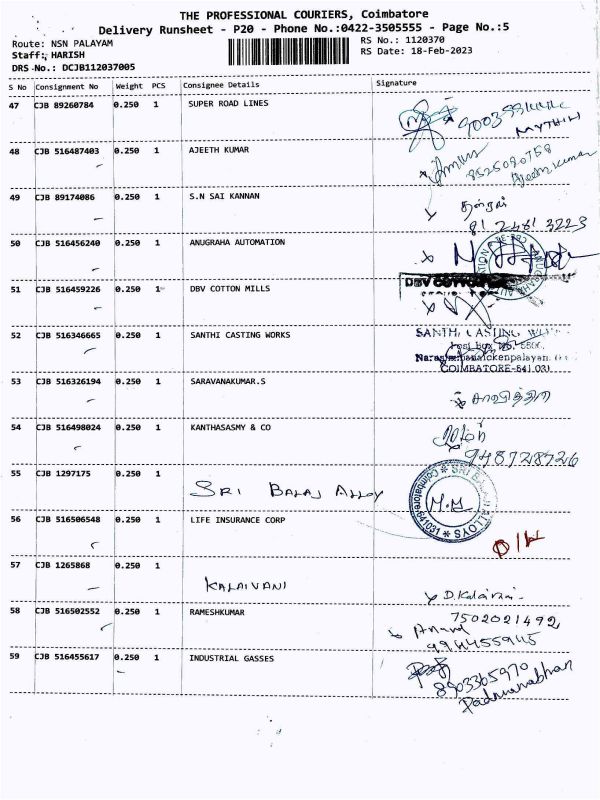 THE PROFESSIONAL COURIERS, Coimbatore
Delivery Runsheet - P20 - Phone No.:0422-3505555 - Page No.:5
Route: NSN PALAYAM
RS No.: 1120370
Staff: HARISH
RS Date: 18-Feb-2023
DRS No.: DCJB112037005
S No Consignment No Weight PCS Consignee Details Signature
47 CJB 89260784 0.250 1 SUPER ROAD LINES
MYTHIN
48 CJB 516487403 0.250 1 AJEETH KUMAR
8525020758
Ajeeth Kumar
49 CJB 89174086 0.250 1 S.N SAI KANNAN
81 2481 3223
50 CJB 516456240 0.250 1 ANUGRAHA AUTOMATION
51 CJB 516459226 0.250 1 DBV COTTON MILLS
DBV COTTON
52 CJB 516346665 0.250 1 SANTHI CASTING WORKS
SANTHI CASTING
COIMBATORE-641 031
53 CJB 516326194 0.250 1 SARAVANAKUMAR.S
சாவித்திரி
54 CJB 516498024 0.250 1 KANTHASASMY & CO
948728726
55 CJB 1297175 0.250 1 SRI BALAJ ALLOY
SRI BALAJI ALLOYS
Coimbatore-641031
M.M
56 CJB 516506548 0.250 1 LIFE INSURANCE CORP
57 CJB 1265868 0.250 1 KALAIVANI
D. Kalaivani
58 CJB 516502552 0.250 1 RAMESHKUMAR
7502021492
Anand
9944559445
59 CJB 516455617 0.250 1 INDUSTRIAL GASSES
8903365970
Padmanabhan